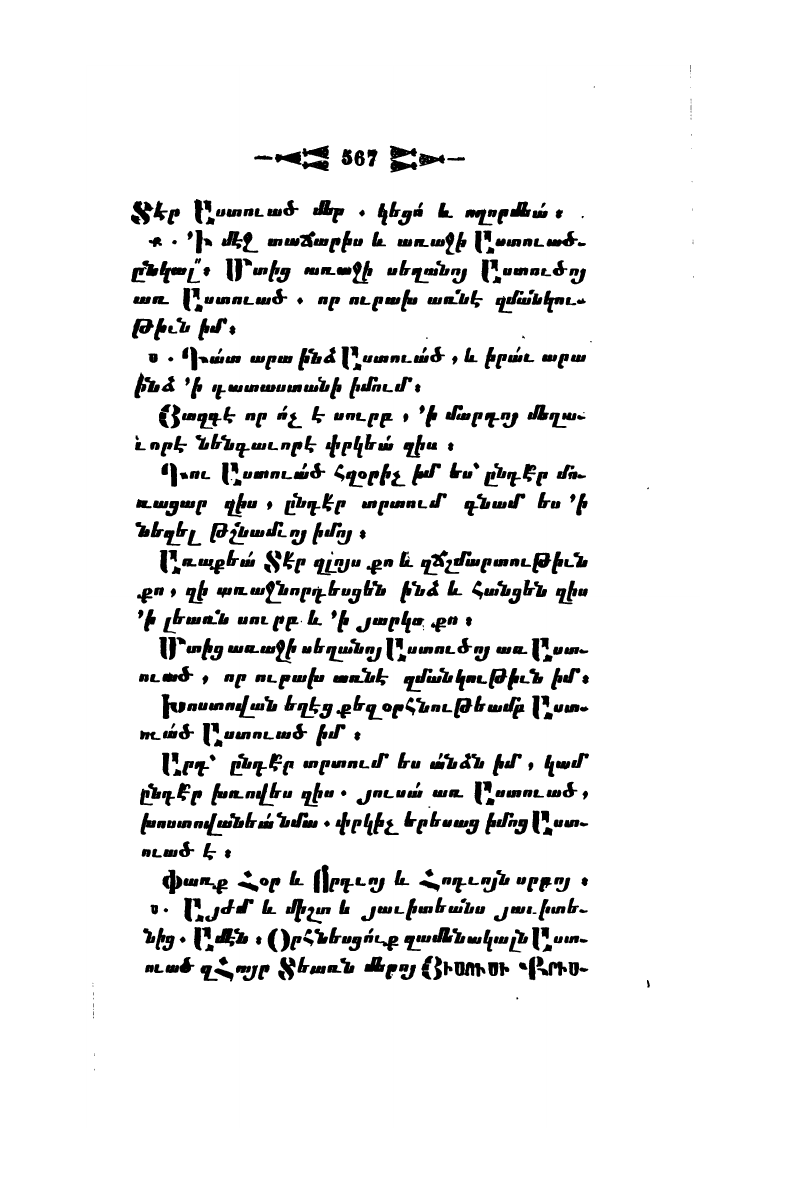 567
Տէր Աստուած մեր . կեցո՛ և ողորմեա՛ ։
ք . ՚Ի մէջ տաճարիս և առաջի Աստուած-
ընկալ՛՛։ Մտից առաջի սեղանոյ Աստուծոյ
առ Աստուած . որ ուրախ առնէ զմանկու-
թիւն իմ։
ս . Դա՛տ արա ինձ Աստուա՛ծ , և իրա՛ւ արա
ի՛նձ ՚ի դատաստանի իմում ։
Յազգէ որ ո՛չ է սուրբ , ՚ի մարդոյ մեղա-
ւորէ նենգաւորէ փրկեա՛ զիս ։
Դու Աստուա՛ծ Հզօրիչ իմ ես՝ ընդէ՛ր մո-
ռացար զիս , ընդէ՛ր տրտում գնամ ես ՚ի
նեղել թշնամւոյ իմոյ ։
Առաքեա՛ Տէր զլոյս քո և զճշմարտութիւն
քո , զի առաջնորդեսցեն ինձ և Հանցեն զիս
՚ի լեառն սուրբ և ՚ի յարկս քո ։
Մտից առաջի սեղանոյ Աստուծոյ առ Աստ-
ուած , որ ուրախ առնէ զմանկութիւն իմ։
Խոստովան եղէց քեզ օրՀնութեամբ Աստ-
ուա՛ծ Աստուած իմ ։
Արդ՝ ընդէ՛ր տրտում ես ա՛նձն իմ , կամ
ընդէ՛ր խռովես զիս . յուսա՛ առ Աստուած ,
խոստովանեա՛ նմա . փրկիչ երեսաց իմոց Աստ-
ուած է ։
Փառք Հօր և Որդւոյ և Հոգւոյն սրբոյ ։
ս . Այժմ և միշտ և յաւիտեանս յաւիտե-
նից . Ամէն ։ Օրհնեսցո՛ւք զամենակալն Աստ-
ուած զՀայր Տեառն մերոյ ՅԻՍՈՒՍԻ ՔՐԻՍ-